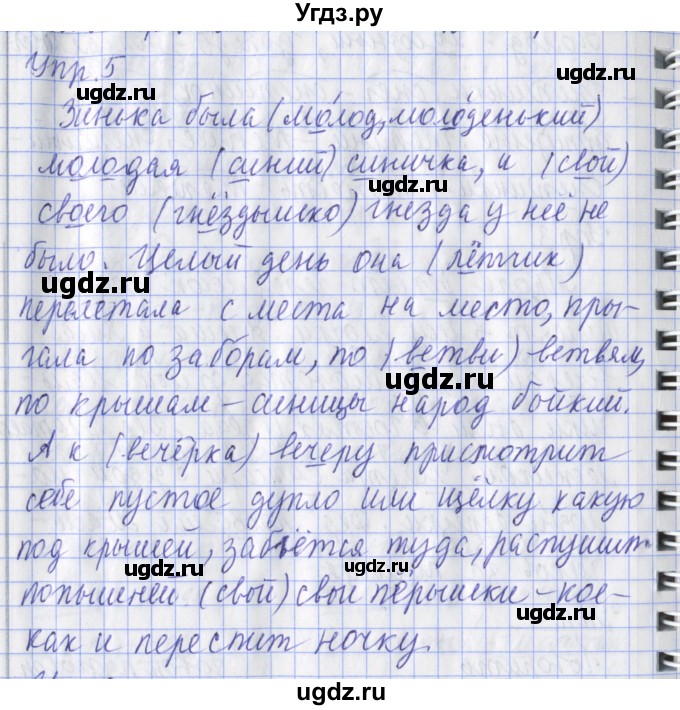 Угдз.ру
Упр. 5
Зинька была (молод, молоденький)
молодая (синий) синичка, и (свой)
своего (гнёздышко) гнезда у неё не
было. Целый день она (лётчик)
перелетала с места на место, пры-
гала по заборам, по (ветви) ветвям,
по крышам – синицы народ бойкий.
А к (вечёрка) вечеру присмотрит
себе пустое дупло или щёлку какую
под крышей, забьётся туда, распушит
попышней (свой) свои пёрышки – кое-
как и переспит ночку.
ugdz.ru
ugdz.ru
ugdz.ru
ugdz.ru
ugdz.ru
ugdz.ru
ugdz.ru
ugdz.ru
ugdz.ru
ugdz.ru
ugdz.ru
ugdz.ru
ugdz.ru